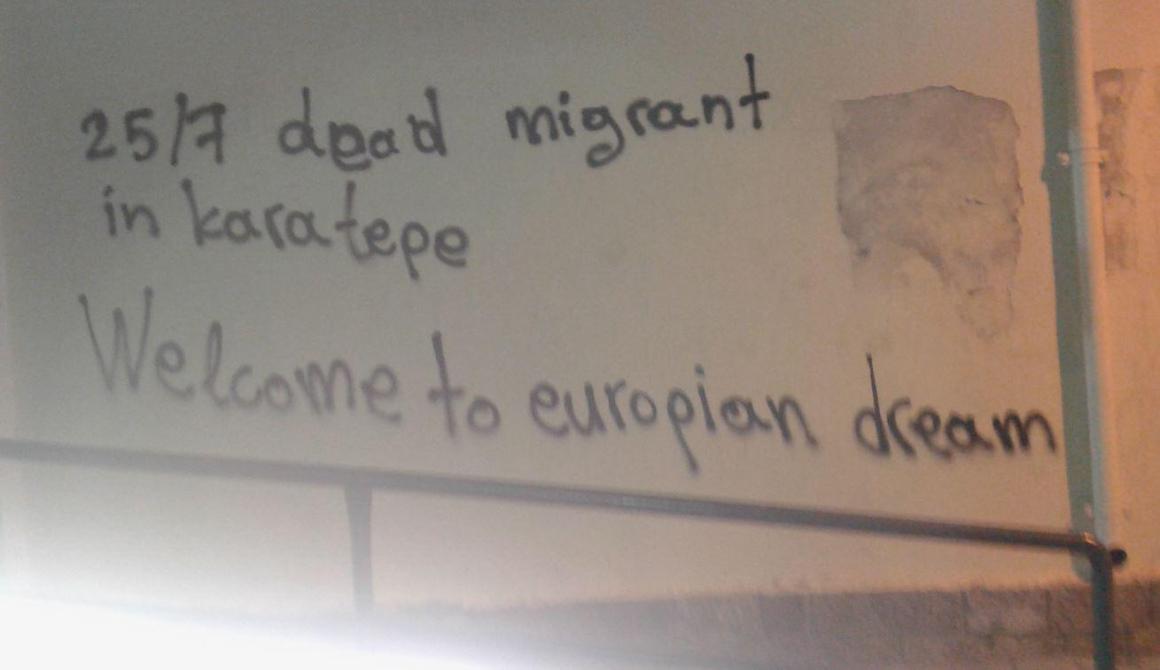 25/7 dead migrant
in karatepe
Welcome to europian dream